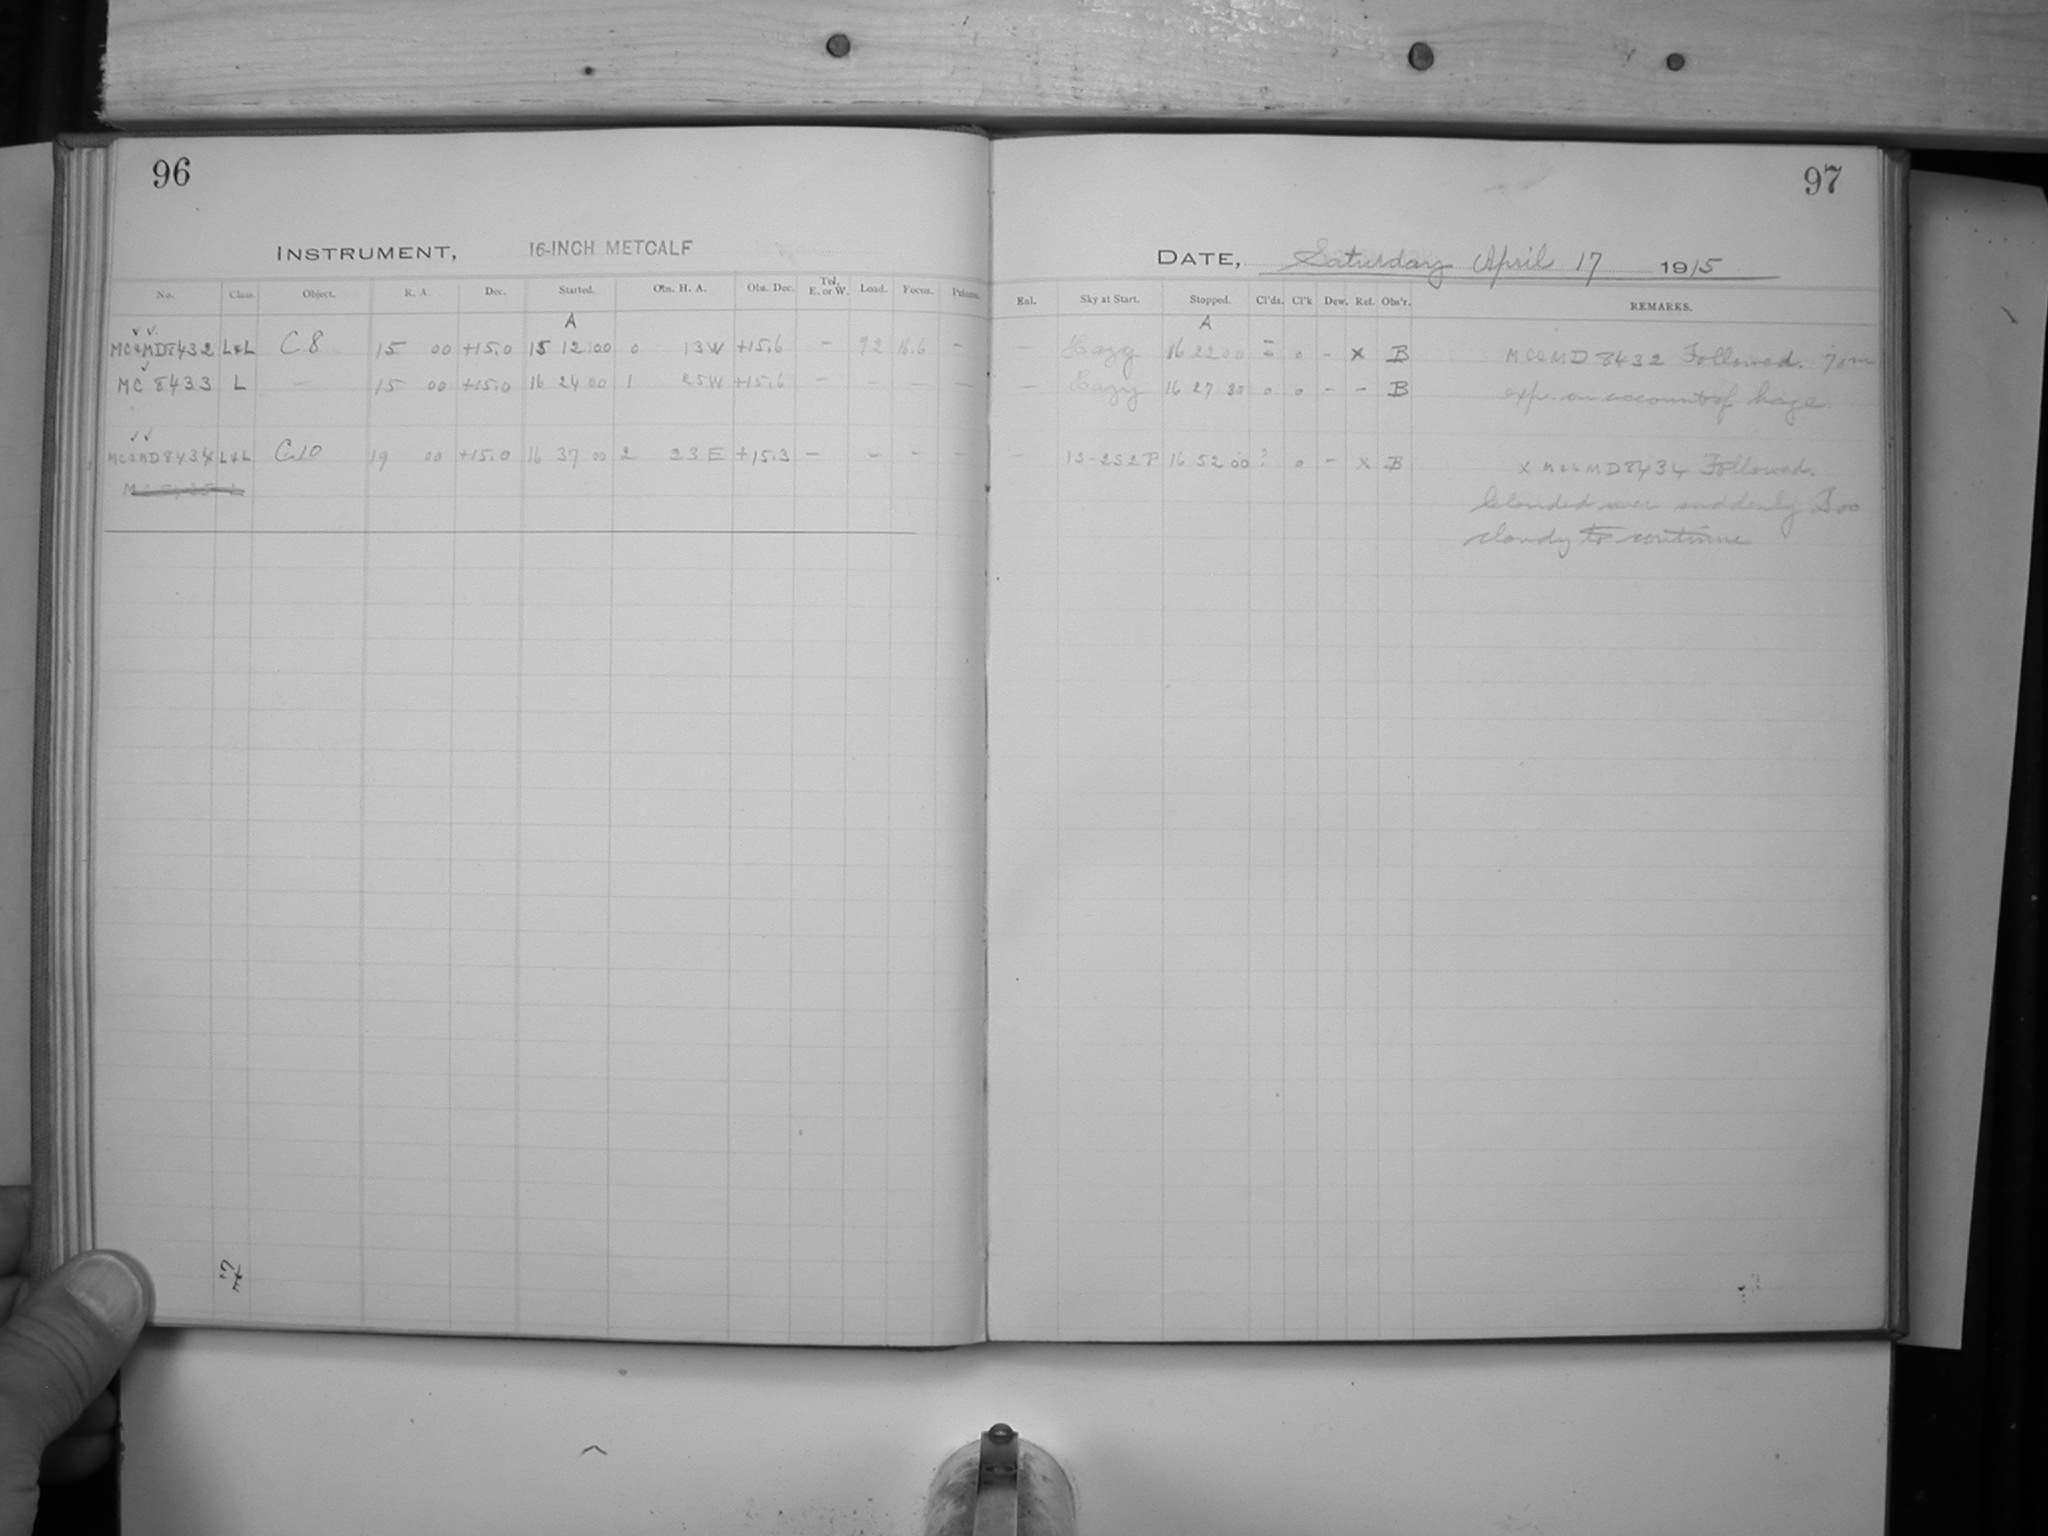 96
INSTRUMENT, 16-INCH METCALF
No. Class. Object. R. A. Dec. Started. Obs. H. A. Obs. Dec. Tel. E. or W. Load. Focus. Prisms.
A
MC&MD8432 L&L C8 15 00 +15.0 15 12 00 0 13W +15.6 – 92 16.6 –
MC 8433 L – 15 00 +15.0 16 24 00 1 25W +15.6 – – – –
MC&MD8434 L&L C10 19 00 +15.0 16 37 00 2 23E +15.3 – – – –
97
DATE, Saturday April 17 1915
Enl. Sky at Start. Stopped. Cl'ds. Cl'k Dew. Rel. Obs'r. REMARKS.
A
– Hazy 16 22 00 0 – x B MC&MD 8432 Followed. 70m
– Hazy 16 27 30 0 0 – – B expo on account of haze.
– 1S-2S2P 16 52 00 ? 0 – x B x MC&MD8434 Followed.
Clouded over suddenly Too
cloudy to continue